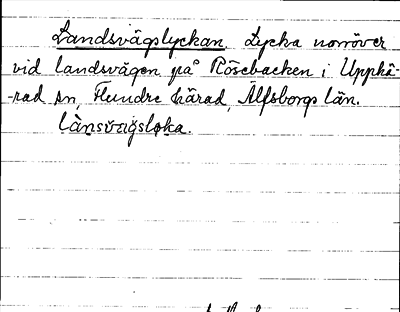 Landsvägslyckan. Lycka norröver
vid landsvägen på Rösebacken i Upphä-
-rad sn, Flundre härad, Älfsborgs län.
lànsvagsløka.